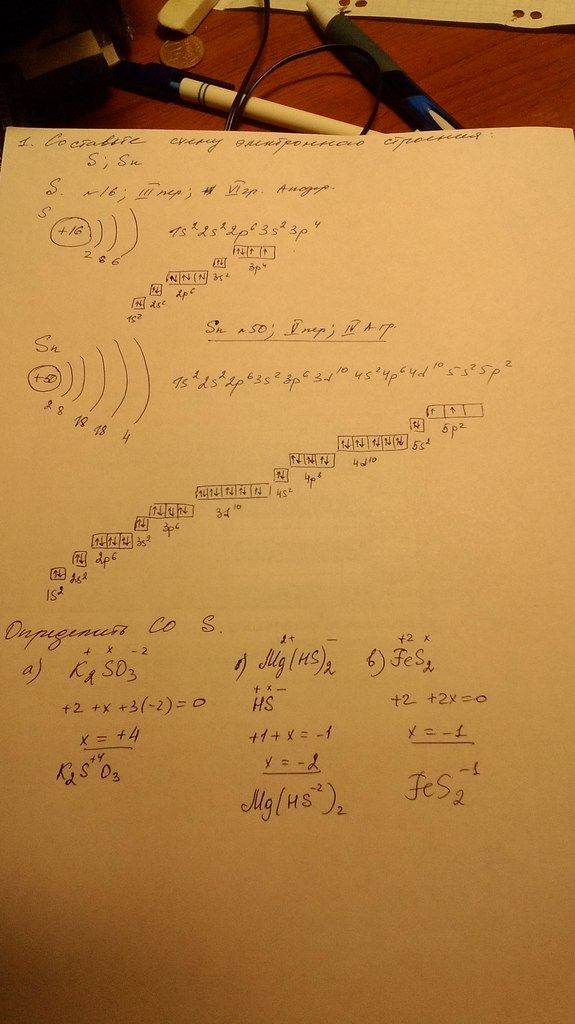 1. Составьте схему электронного строения:
S; Sn
S. №16; III пер; VI гр. А подгр.
S
+16
2 8 6
1s² 2s² 2p⁶ 3s² 3p⁴
1s² 2s² 2p⁶ 3s² 3p⁴
Sn №50; V пер; IV А гр.
Sn
+50
2 8 18 18 4
1s² 2s² 2p⁶ 3s² 3p⁶ 3d¹⁰ 4s² 4p⁶ 4d¹⁰ 5s² 5p²
1s² 2s² 2p⁶ 3s² 3p⁶ 3d¹⁰ 4s² 4p⁶ 4d¹⁰ 5s² 5p²
Определить СО S.
а) K₂⁺SˣO₃⁻²
+2 +x +3(-2) = 0
x = +4
K₂S⁺⁴O₃
б) Mg²⁺(HS)₂⁻
H⁺Sˣ⁻
+1 + x = -1
x = -2
Mg(HS⁻²)₂
в) Fe⁺²S₂ˣ
+2 +2x = 0
x = -1
FeS₂⁻¹